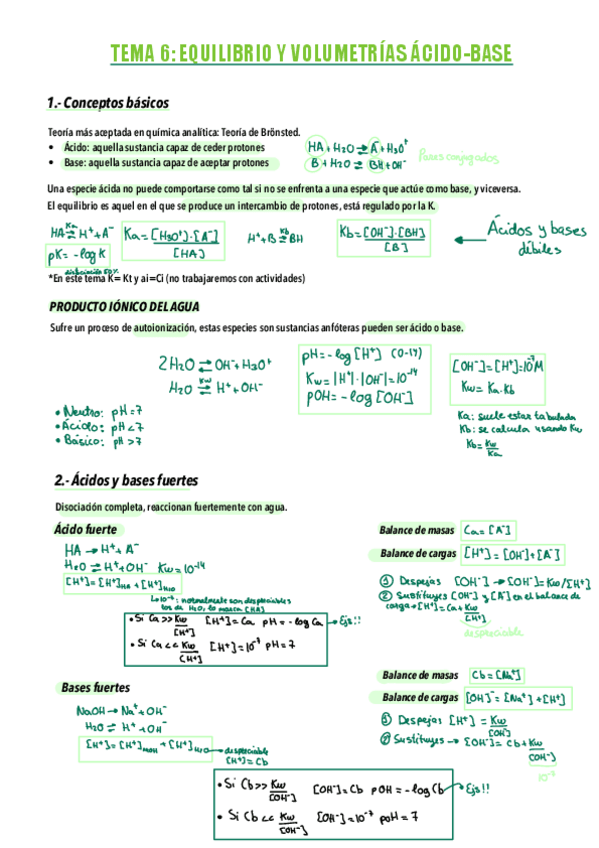 TEMA 6: EQUILIBRIO Y VOLUMETRÍAS ÁCIDO-BASE
1.- Conceptos básicos
Teoría más aceptada en química analítica: Teoría de Brönsted.
• Ácido: aquella sustancia capaz de ceder protones
HA + H2O ⇌ A⁻ + H3O⁺
• Base: aquella sustancia capaz de aceptar protones
B + H2O ⇌ BH + OH⁻
Pares conjugados
Una especie ácida no puede comportarse como tal si no se enfrenta a una especie que actúe como base, y viceversa.
El equilibrio es aquel en el que se produce un intercambio de protones, está regulado por la K.
HA ⇌ H⁺ + A⁻
Ka
Ka = [H3O⁺]·[A⁻] / [HA]
H⁺ + B ⇌ BH
Kb
Kb = [OH⁻]·[BH] / [B]
Ácidos y bases débiles
pK = - log K
disociación 50%
*En este tema K= Kt y ai=Ci (no trabajaremos con actividades)
PRODUCTO IÓNICO DEL AGUA
Sufre un proceso de autoionización, estas especies son sustancias anfóteras pueden ser ácido o base.
2H2O ⇌ OH⁻ + H3O⁺
H2O ⇌ H⁺ + OH⁻
Kw
pH = - log [H⁺] (0-14)
Kw = |H⁺|·|OH⁻| = 10⁻¹⁴
pOH = - log [OH⁻]
[OH⁻] = [H⁺] = 10⁻⁷ M
Kw = Ka·Kb
• Neutro: pH = 7
• Ácido: pH < 7
• Básico: pH > 7
Ka: suele estar tabulada
Kb: se calcula usando Kw
Kb = Kw / Ka
2.- Ácidos y bases fuertes
Disociación completa, reaccionan fuertemente con agua.
Ácido fuerte
HA → H⁺ + A⁻
H2O ⇌ H⁺ + OH⁻ Kw = 10⁻¹⁴
[H⁺] = [H⁺]HA + [H⁺]H2O
normalmente son despreciables
los de H2O, lo marca [HA]
• Si Ca >> Kw / [H⁺] [H⁺] = Ca pH = - log Ca → Ejs!!
• Si Ca << Kw / [H⁺] [H⁺] = 10⁻⁷ pH = 7
Balance de masas Ca = [A⁻]
Balance de cargas [H⁺] = [OH⁻] + [A⁻]
① Despejas [OH⁻] → [OH⁻] = Kw/[H⁺]
② Sustituyes [OH⁻] y [A⁻] en el balance de
carga → [H⁺] = Ca + Kw / [H⁺]
despreciable
Bases fuertes
NaOH → Na⁺ + OH⁻
H2O ⇌ H⁺ + OH⁻
[H⁺] = [H⁺]NaOH + [H⁺]H2O → despreciable
[H⁺] = Cb
Balance de masas Cb = [Na⁺]
Balance de cargas [OH]⁻ = [Na⁺] + [H⁺]
① Despejas [H⁺] = Kw / [OH⁻]
② Sustituyes → [OH⁻] = Cb + Kw / [OH⁻]
10⁻⁷
• Si Cb >> Kw / [OH⁻] [OH⁻] = Cb pOH = - log Cb → Ejs!!
• Si Cb << Kw / [OH⁻] [OH⁻] = 10⁻⁷ pOH = 7